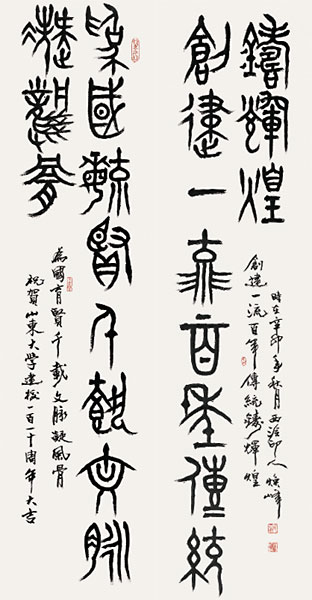 為國育賢千載文脈
凝風骨
為國育賢千載文脈凝風骨
祝賀山東大学建校一百一十周年大吉
創建一流百年傳統
鑄輝煌
創建一流百年傳統鑄輝煌
時在辛卯年秋月西泠印人煥峰